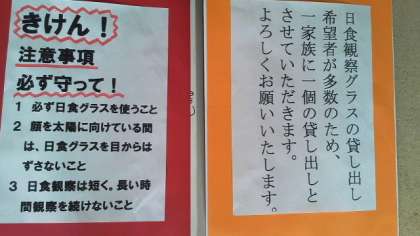 きけん！
注意事項
必ず守って！
1 必ず日食グラスを使うこと
2 顔を太陽に向けている間
は、日食グラスを目からは
ずさないこと
3 日食観察は短く。長い時
間観察を続けないこと
日食観察グラスの貸し出し
希望者が多数のため、
一家族に一個の貸し出しと
させていただきます。
よろしくお願いいたします。